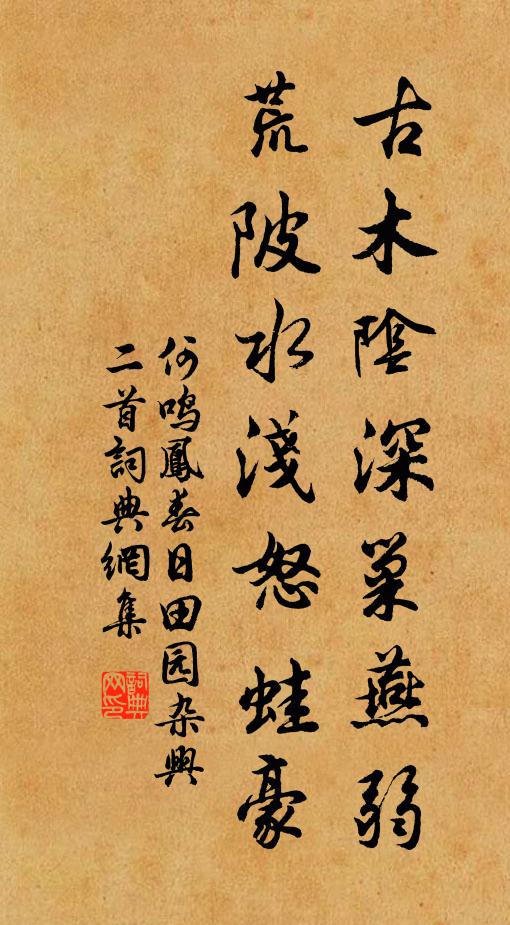 古木陰深巢燕弱
荒陂水淺怒蛙豪
何鳴鳳春日田园杂興
二首詞典網集
詞典网印